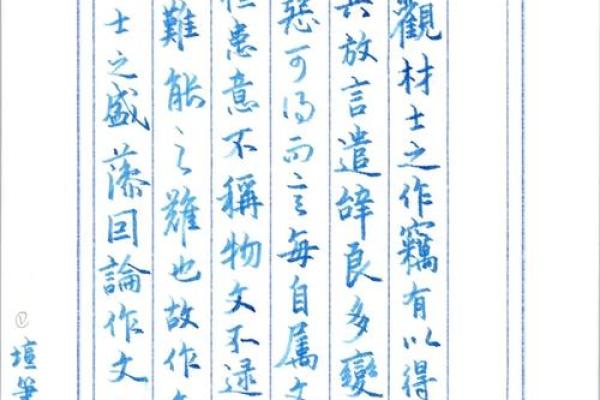 觀材士之作竊有以得
放言遣辭良多變
惡可得而言每自属文
患意不稱物文不逮
難能之難也故作
士之盛藻因論作文